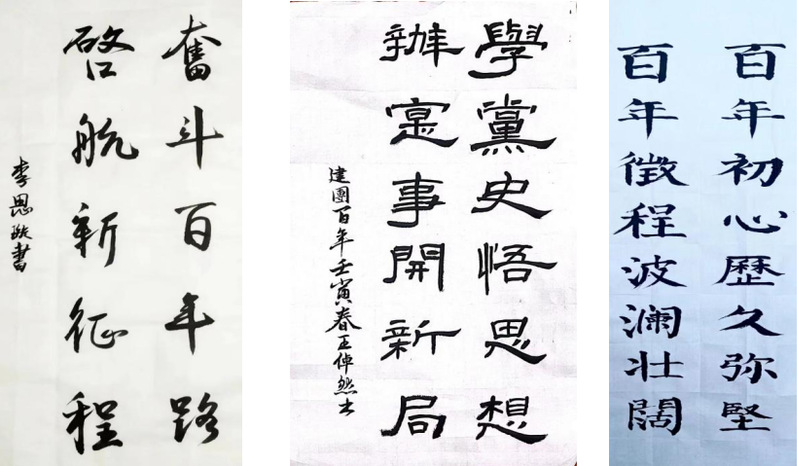 奮斗百年路
啓航新征程
李思璇書
學黨史悟思想
辦寔事開新局
建團百年壬寅春王倬然书
百年初心歷久弥堅
百年徵程波澜壮闊